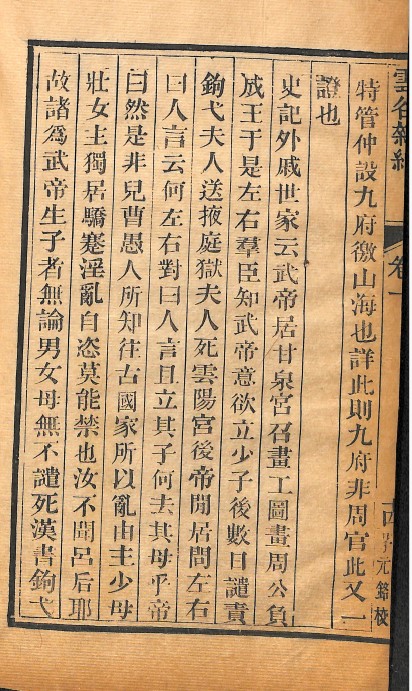 雲谷雜紀
卷一
特管仲設九府徼山海也詳此則九府非周官此又一
證也
史記外戚世家云武帝居甘泉宮召畫工圖畫周公負
成王于是左右羣臣知武帝意欲立少子後數日譴責
鉤弋夫人送掖庭獄夫人死雲陽宮後帝閒居問左右
曰人言云何左右對曰人言且立其子何去其母乎帝
曰然是非兒曹愚人所知往古國家所以亂由主少母
壯女主獨居驕蹇淫亂自恣莫能禁也汝不聞呂后耶
故諸爲武帝生子者無論男女母無不譴死漢書鉤弋